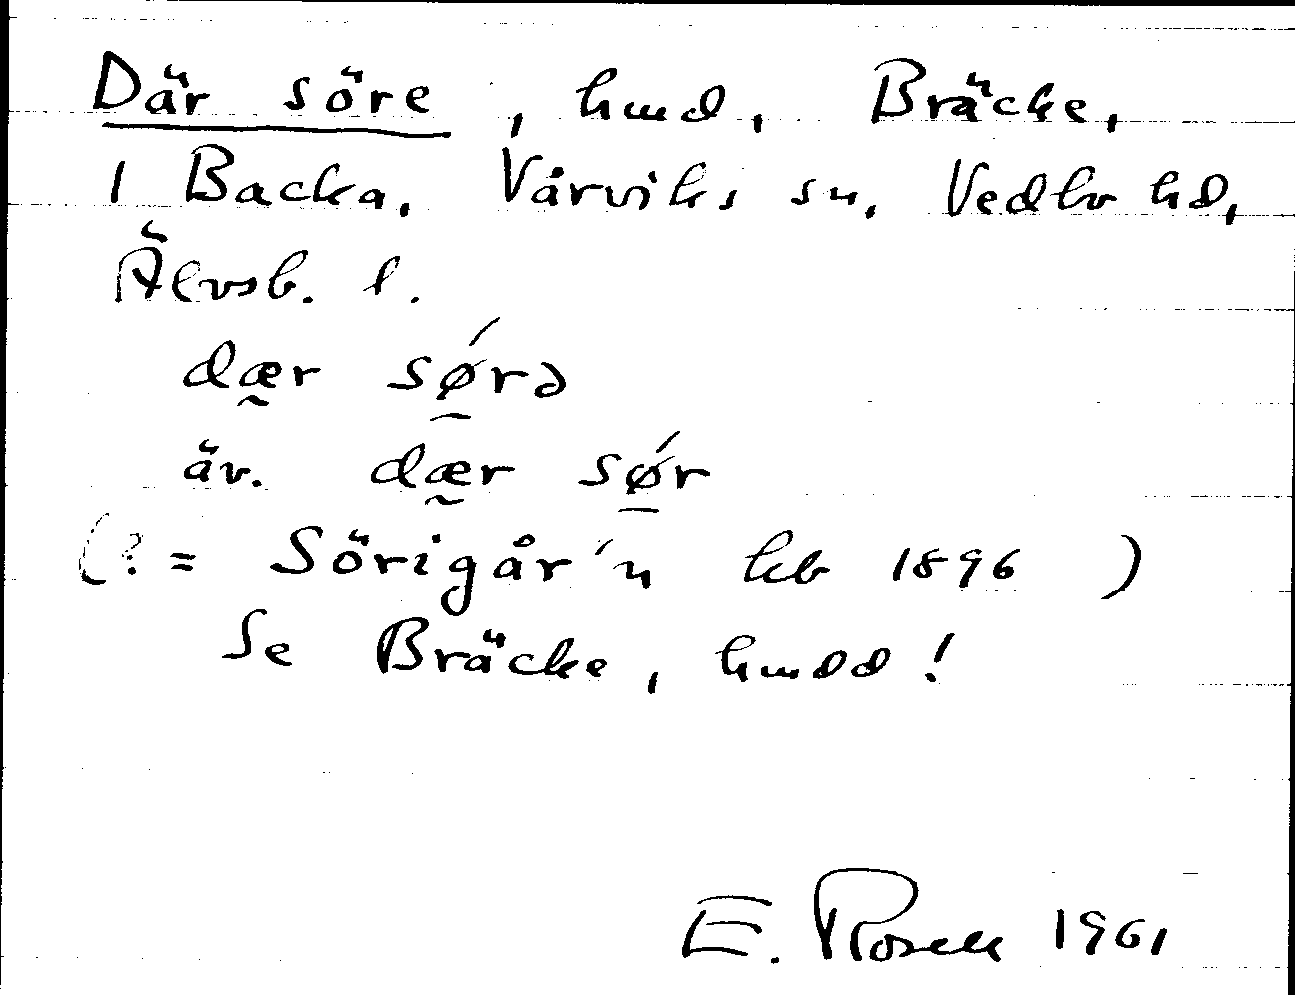 Där söre, hmd, Bräcke,
1 Backa, Vårviks sn, Vedbo hd,
Älvsb. l.
dær sǿrə
äv. dær sǿr
(? = Sörigår'n kb 1896)
Se Bräcke, hmdd!
E. Rosell 1961